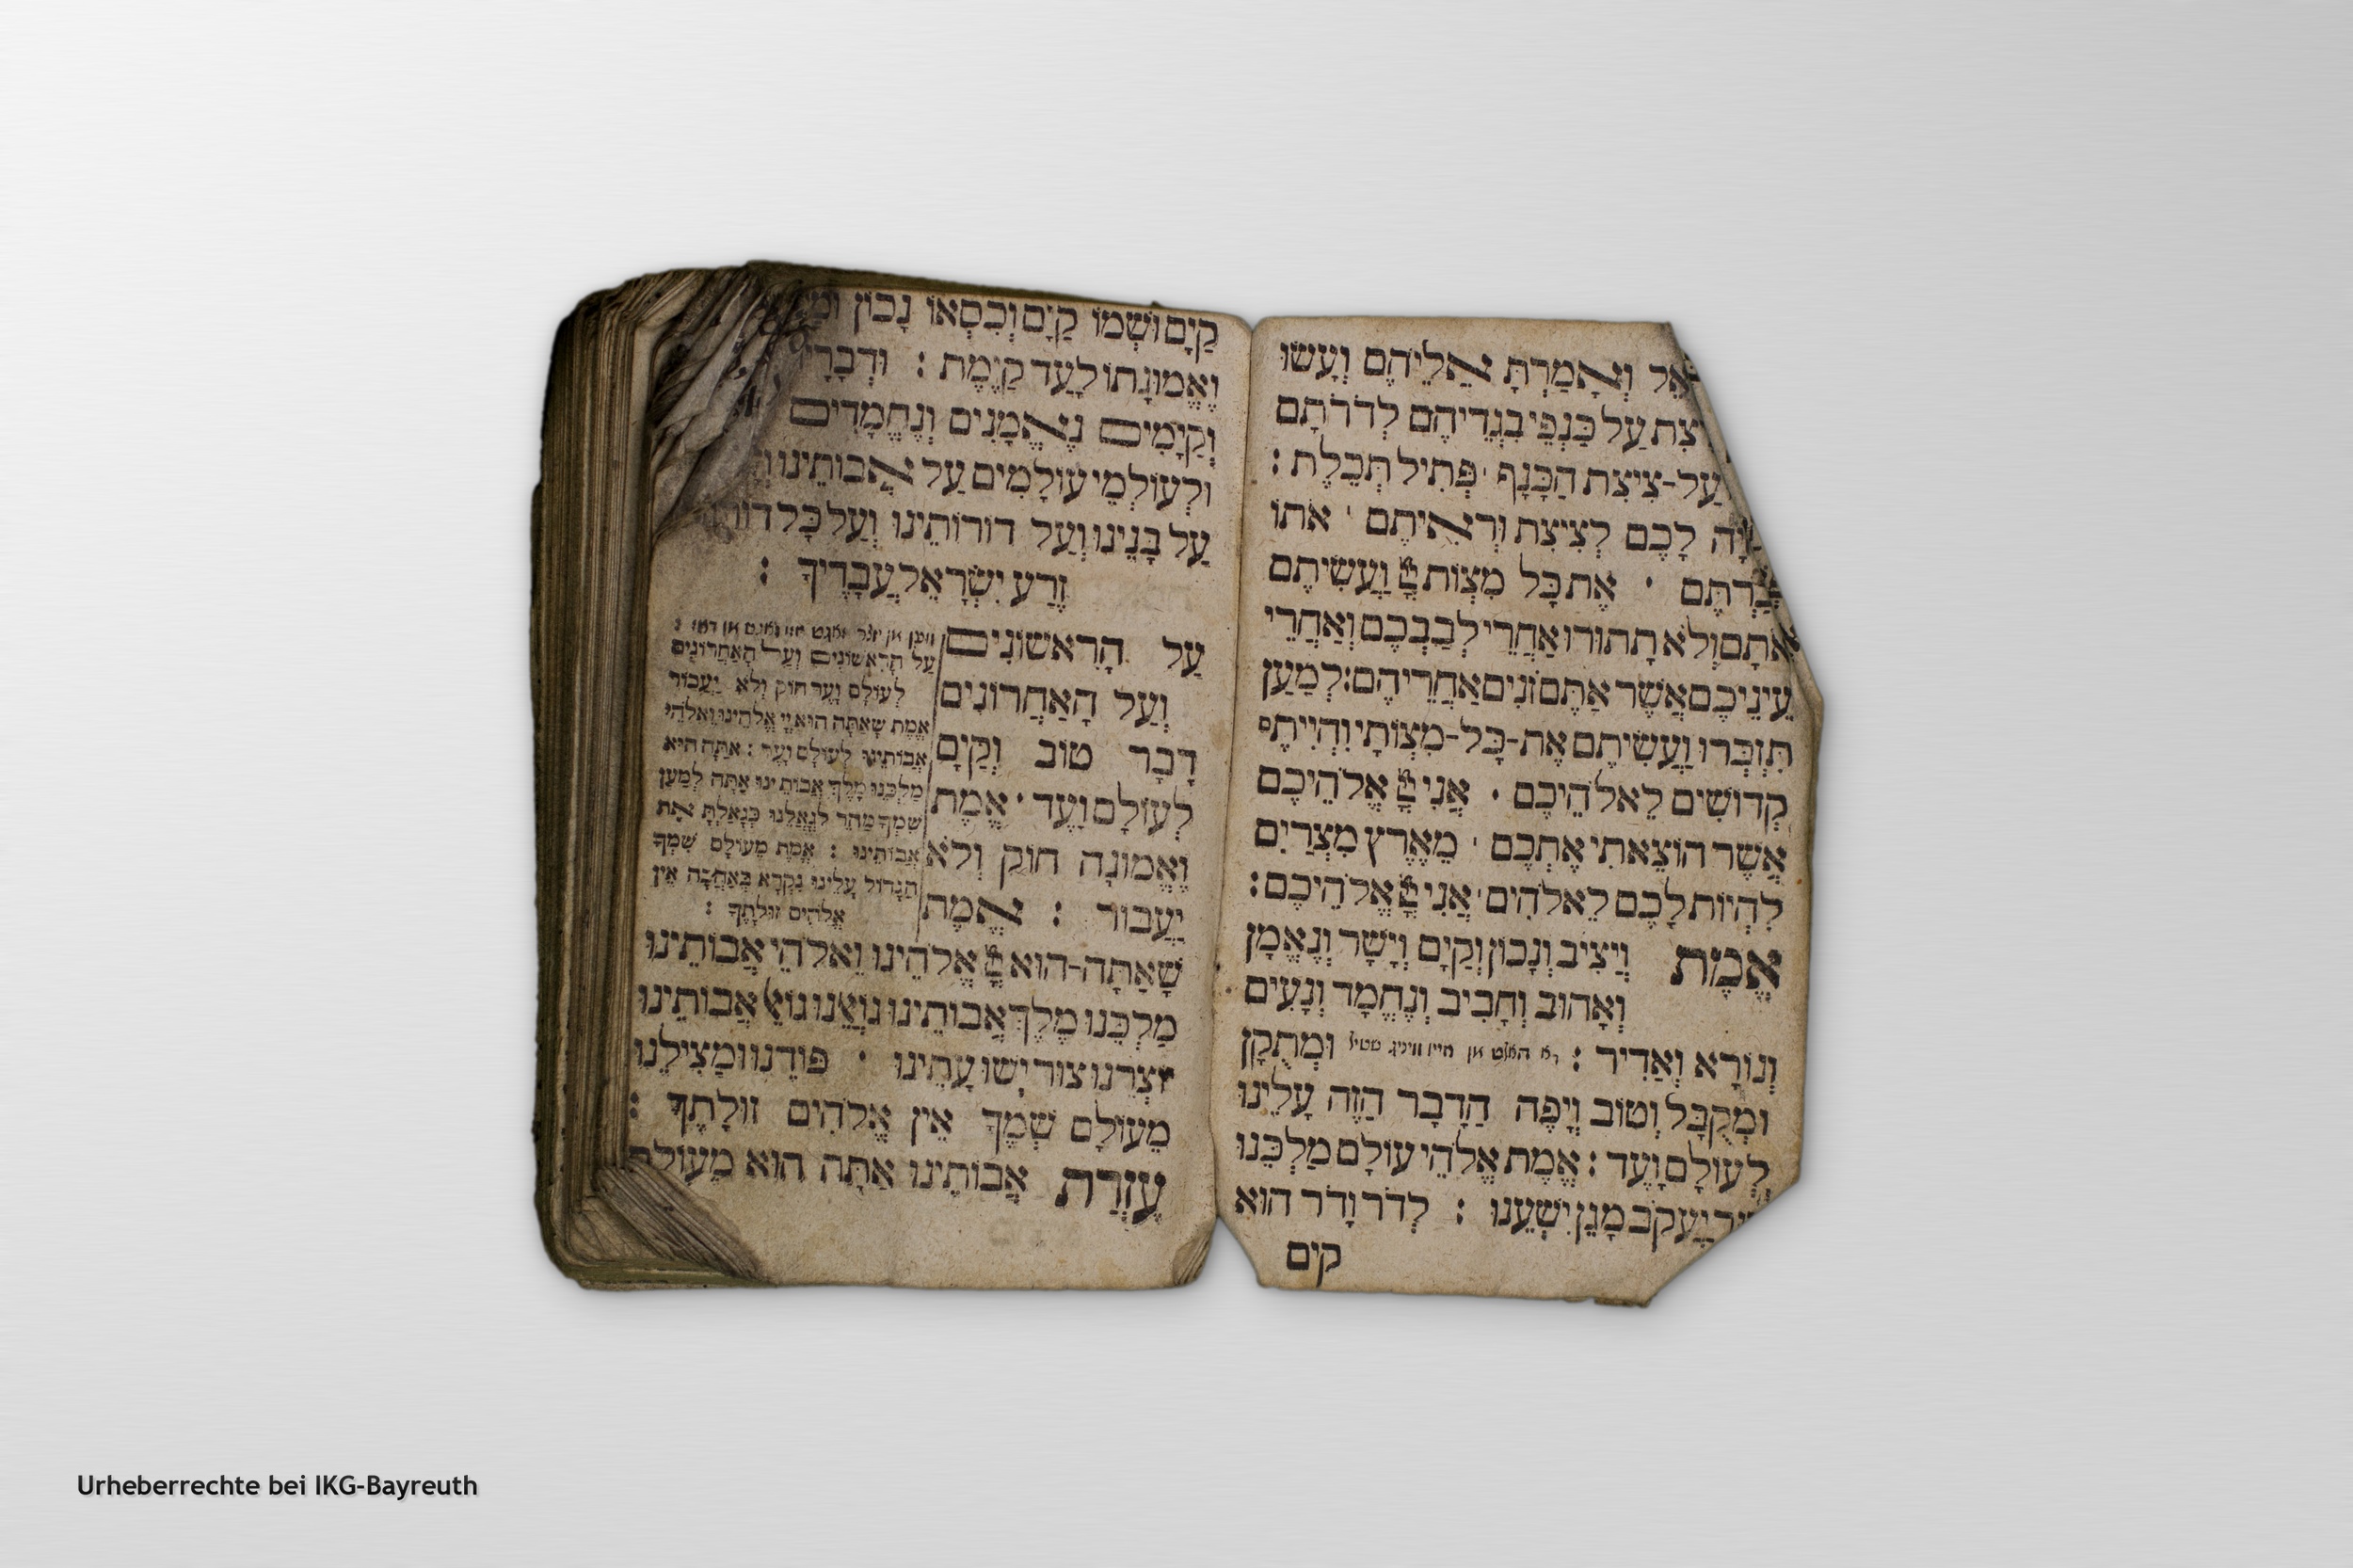 וְאָמַרְתָּ אֲלֵיהֶם וְעָשׂוּ
עַל כַּנְפֵי בִגְדֵיהֶם לְדֹרֹתָם
עַל-צִיצִת הַכָּנָף · פְּתִיל תְּכֵלֶת :
לָכֶם לְצִיצִת וּרְאִיתֶם · אֹתוֹ
· אֶת כָּל מִצְוֹת וַעֲשִׂיתֶם
אֹתָם וְלֹא תָתוּרוּ אַחֲרֵי לְבַבְכֶם וְאַחֲרֵי
עֵינֵיכֶם אֲשֶׁר אַתֶּם זוֹנִים אַחֲרֵיהֶם : לְמַעַן
תִּזְכְּרוּ וַעֲשִׂיתֶם אֶת-כָּל-מִצְוֹתָי וִהְיִיתֶם
קְדוֹשִׁים לֵאלֹהֵיכֶם · אֲנִי אֱלֹהֵיכֶם
אֲשֶׁר הוֹצֵאתִי אֶתְכֶם · מֵאֶרֶץ מִצְרַיִם
לִהְיוֹת לָכֶם לֵאלֹהִים · אֲנִי אֱלֹהֵיכֶם :
אֱמֶת וְיַצִּיב וְנָכוֹן וְקַיָּם וְיָשָׁר וְנֶאֱמָן
וְאָהוּב וְחָבִיב וְנֶחֱמָד וְנָעִים
וְנוֹרָא וְאַדִּיר : וּמְתֻקָּן
וּמְקֻבָּל וְטוֹב וְיָפֶה הַדָּבָר הַזֶּה עָלֵינוּ
לְעוֹלָם וָעֶד : אֱמֶת אֱלֹהֵי עוֹלָם מַלְכֵּנוּ
יַעֲקֹב מָגֵן יִשְׁעֵנוּ : לְדֹר וָדֹר הוּא
קים
קַיָּם וּשְׁמוֹ קַיָּם וְכִסְאוֹ נָכוֹן
וֶאֱמוּנָתוֹ לָעַד קַיֶּמֶת : וּדְבָרָי
וְקַיָּמִים נֶאֱמָנִים וְנֶחֱמָדִים
וּלְעוֹלְמֵי עוֹלָמִים עַל אֲבוֹתֵינוּ
עַל בָּנֵינוּ וְעַל דוֹרוֹתֵינוּ וְעַל כָּל
זֶרַע יִשְׂרָאֵל עֲבָדֶיךָ :
עַל הָרִאשׁוֹנִים
וְעַל הָאַחֲרוֹנִים
דָּבָר טוֹב וְקַיָּם
לְעוֹלָם וָעֶד · אֱמֶת
וֶאֱמוּנָה חוֹק וְלֹא
יַעֲבוֹר : אֱמֶת
עַל הָרִאשׁוֹנִים וְעַל הָאַחֲרוֹנִים
לְעוֹלָם וָעֶד חוֹק וְלֹא יַעֲבוֹר
אֱמֶת שָׁאַתָּה הוּא יְיָ אֱלֹהֵינוּ וֵאלֹהֵי
אֲבוֹתֵינוּ לְעוֹלָם וָעֶד : אַתָּה הוּא
מַלְכֵּנוּ מֶלֶךְ אֲבוֹתֵינוּ אַתָּה לְמַעַן
שִׁמְךָ מַהֵר לְגָאֳלֵנוּ כְּגָאַלְתָּ אֶת
אֲבוֹתֵינוּ : אֱמֶת מֵעוֹלָם שִׁמְךָ
הַגָּדוֹל עָלֵינוּ נִקְרָא בְּאַהֲבָה אֵין
אֱלֹהִים זוּלָתֶךָ :
שָׁאַתָּה-הוּא אֱלֹהֵינוּ וֵאלֹהֵי אֲבוֹתֵינוּ
מַלְכֵּנוּ מֶלֶךְ אֲבוֹתֵינוּ גּוֹאֲלֵנוּ גּוֹאֵל אֲבוֹתֵינוּ
יוֹצְרֵנוּ צוּר יְשׁוּעָתֵינוּ · פּוֹדֵנוּ וּמַצִּילֵנוּ
מֵעוֹלָם שְׁמֶךָ אֵין אֱלֹהִים זוּלָתֶךָ :
עֶזְרַת אֲבוֹתֵינוּ אַתָּה הוּא מֵעוֹלָם
Urheberrechte bei IKG-Bayreuth